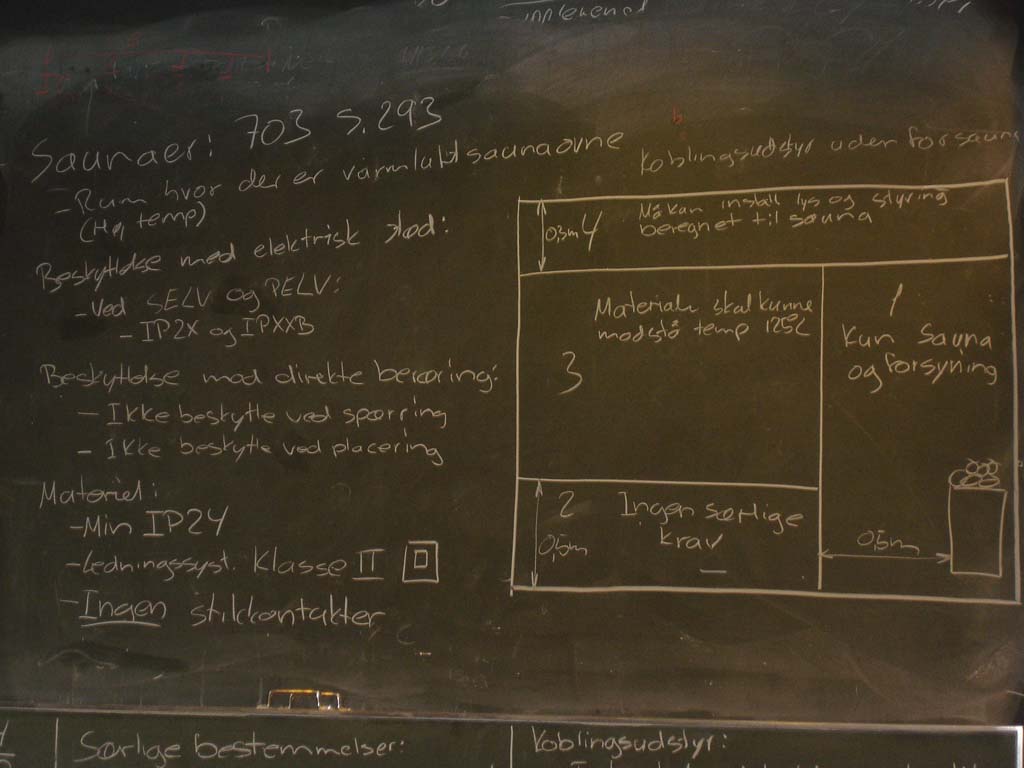 implement
Saunaer: 703 s.293
- Rum hvor der er varmluftsaunaovne
(Høj temp)
Beskyttelse mod elektrisk stød:
- Ved SELV og PELV:
- IP2X og IPXXB
Beskyttelse mod direkte berøring:
- Ikke beskytte ved spærring
- Ikke beskytte ved placering
Materiel:
- Min IP24
- Ledningssyst. Klasse II
- Ingen stikkontakter
Koblingsudstyr uden for sauna
0,3m 4 Må kun install lys og styring
beregnet til sauna
3 Materiale skal kunne
modstå temp 125C
1
Kun Sauna
og forsyning
2 Ingen særlige
krav
0,5m
0,5m
Særlige bestemmelser:
Koblingsudstyr: